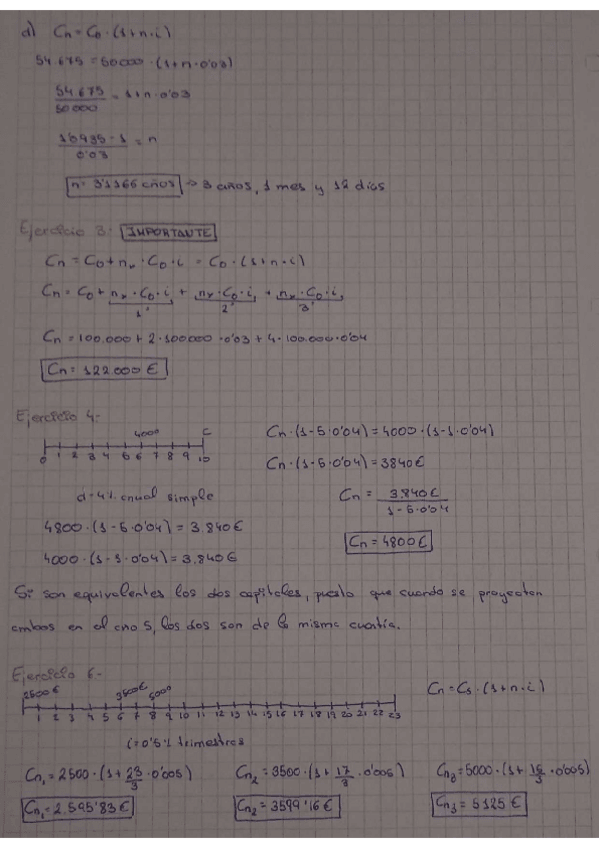 d) Cn = C0 · (1+n·i)
54.675 = 50000 · (1+n·0'03)
54675/50000 = 1+n·0'03
1'0935-1/0'03 = n
n = 3'1166 años → 3 años, 1 mes y 12 días
Ejercicio 3.- IMPORTANTE
Cn = C0 + n · C0 · i = C0 · (1+n·i)
Cn = C0 + n · C0 · i + n · C0 · i + n · C0 · i
1' 2' 3'
Cn = 100.000 + 2·100.000·0'03 + 4·100.000·0'04
Cn = 122.000 €
Ejercicio 4.-
4000 C
0 1 2 3 4 5 6 7 8 9 10
d = 4% anual simple
4800 · (1-5·0'04) = 3.840 €
4000 · (1-1·0'04) = 3.840 €
Cn · (1-5·0'04) = 4000 · (1-1·0'04)
Cn · (1-5·0'04) = 3840 €
Cn = 3.840 €/1-5·0'04
Cn = 4800 €
Si son equivalentes los dos capitales, puesto que cuando se proyectan
ambos en el año 5, los dos son de la misma cuantía.
Ejercicio 6.-
2500 € 3500€ 5000
1 2 3 4 5 6 7 8 9 10 11 12 13 14 15 16 17 18 19 20 21 22 23
i = 0'5% trimestres
Cn = Cs · (1+n·i)
Cn1 = 2500 · (1+23/3·0'005) Cn2 = 3500 · (1+17/3·0'005) Cn3 = 5000 · (1+15/3·0'005)
Cn1 = 2.595'83 € Cn2 = 3599'16 € Cn3 = 5125 €